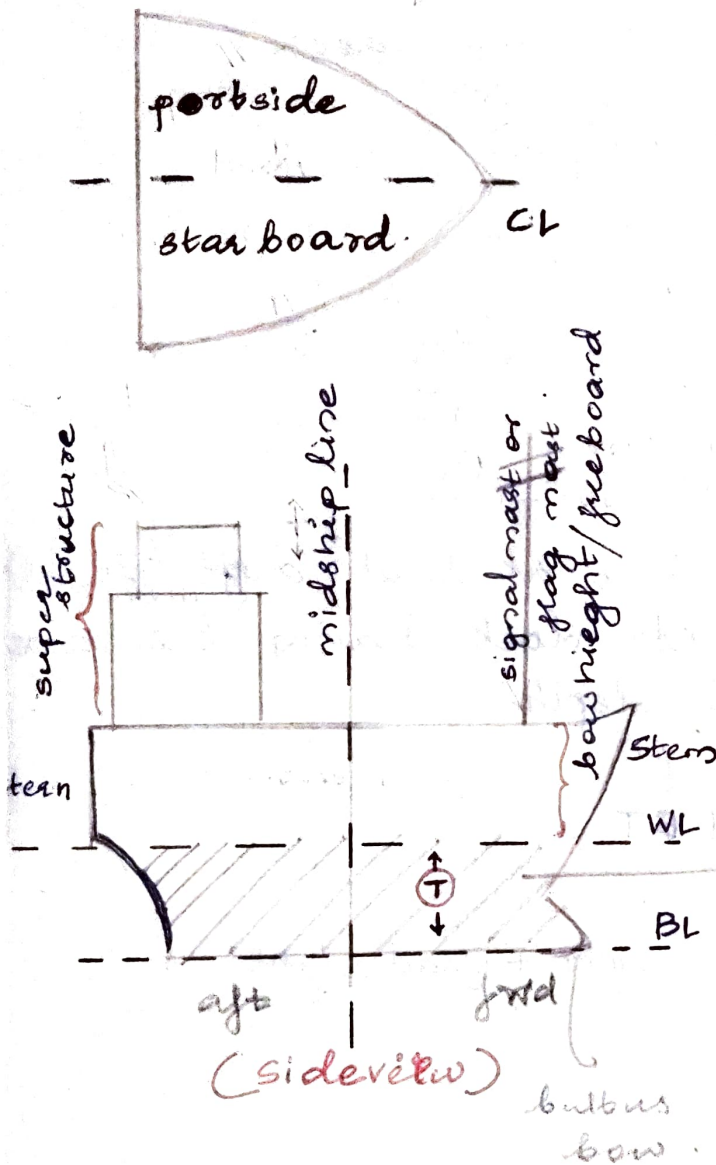 portside
starboard.
CL
super
structure
midship line
signal mast or
flag mast.
bow hieght/freeboard
tern
Stem
WL
T
BL
aft
frwd
(sideveiw)
bulbus
bow.